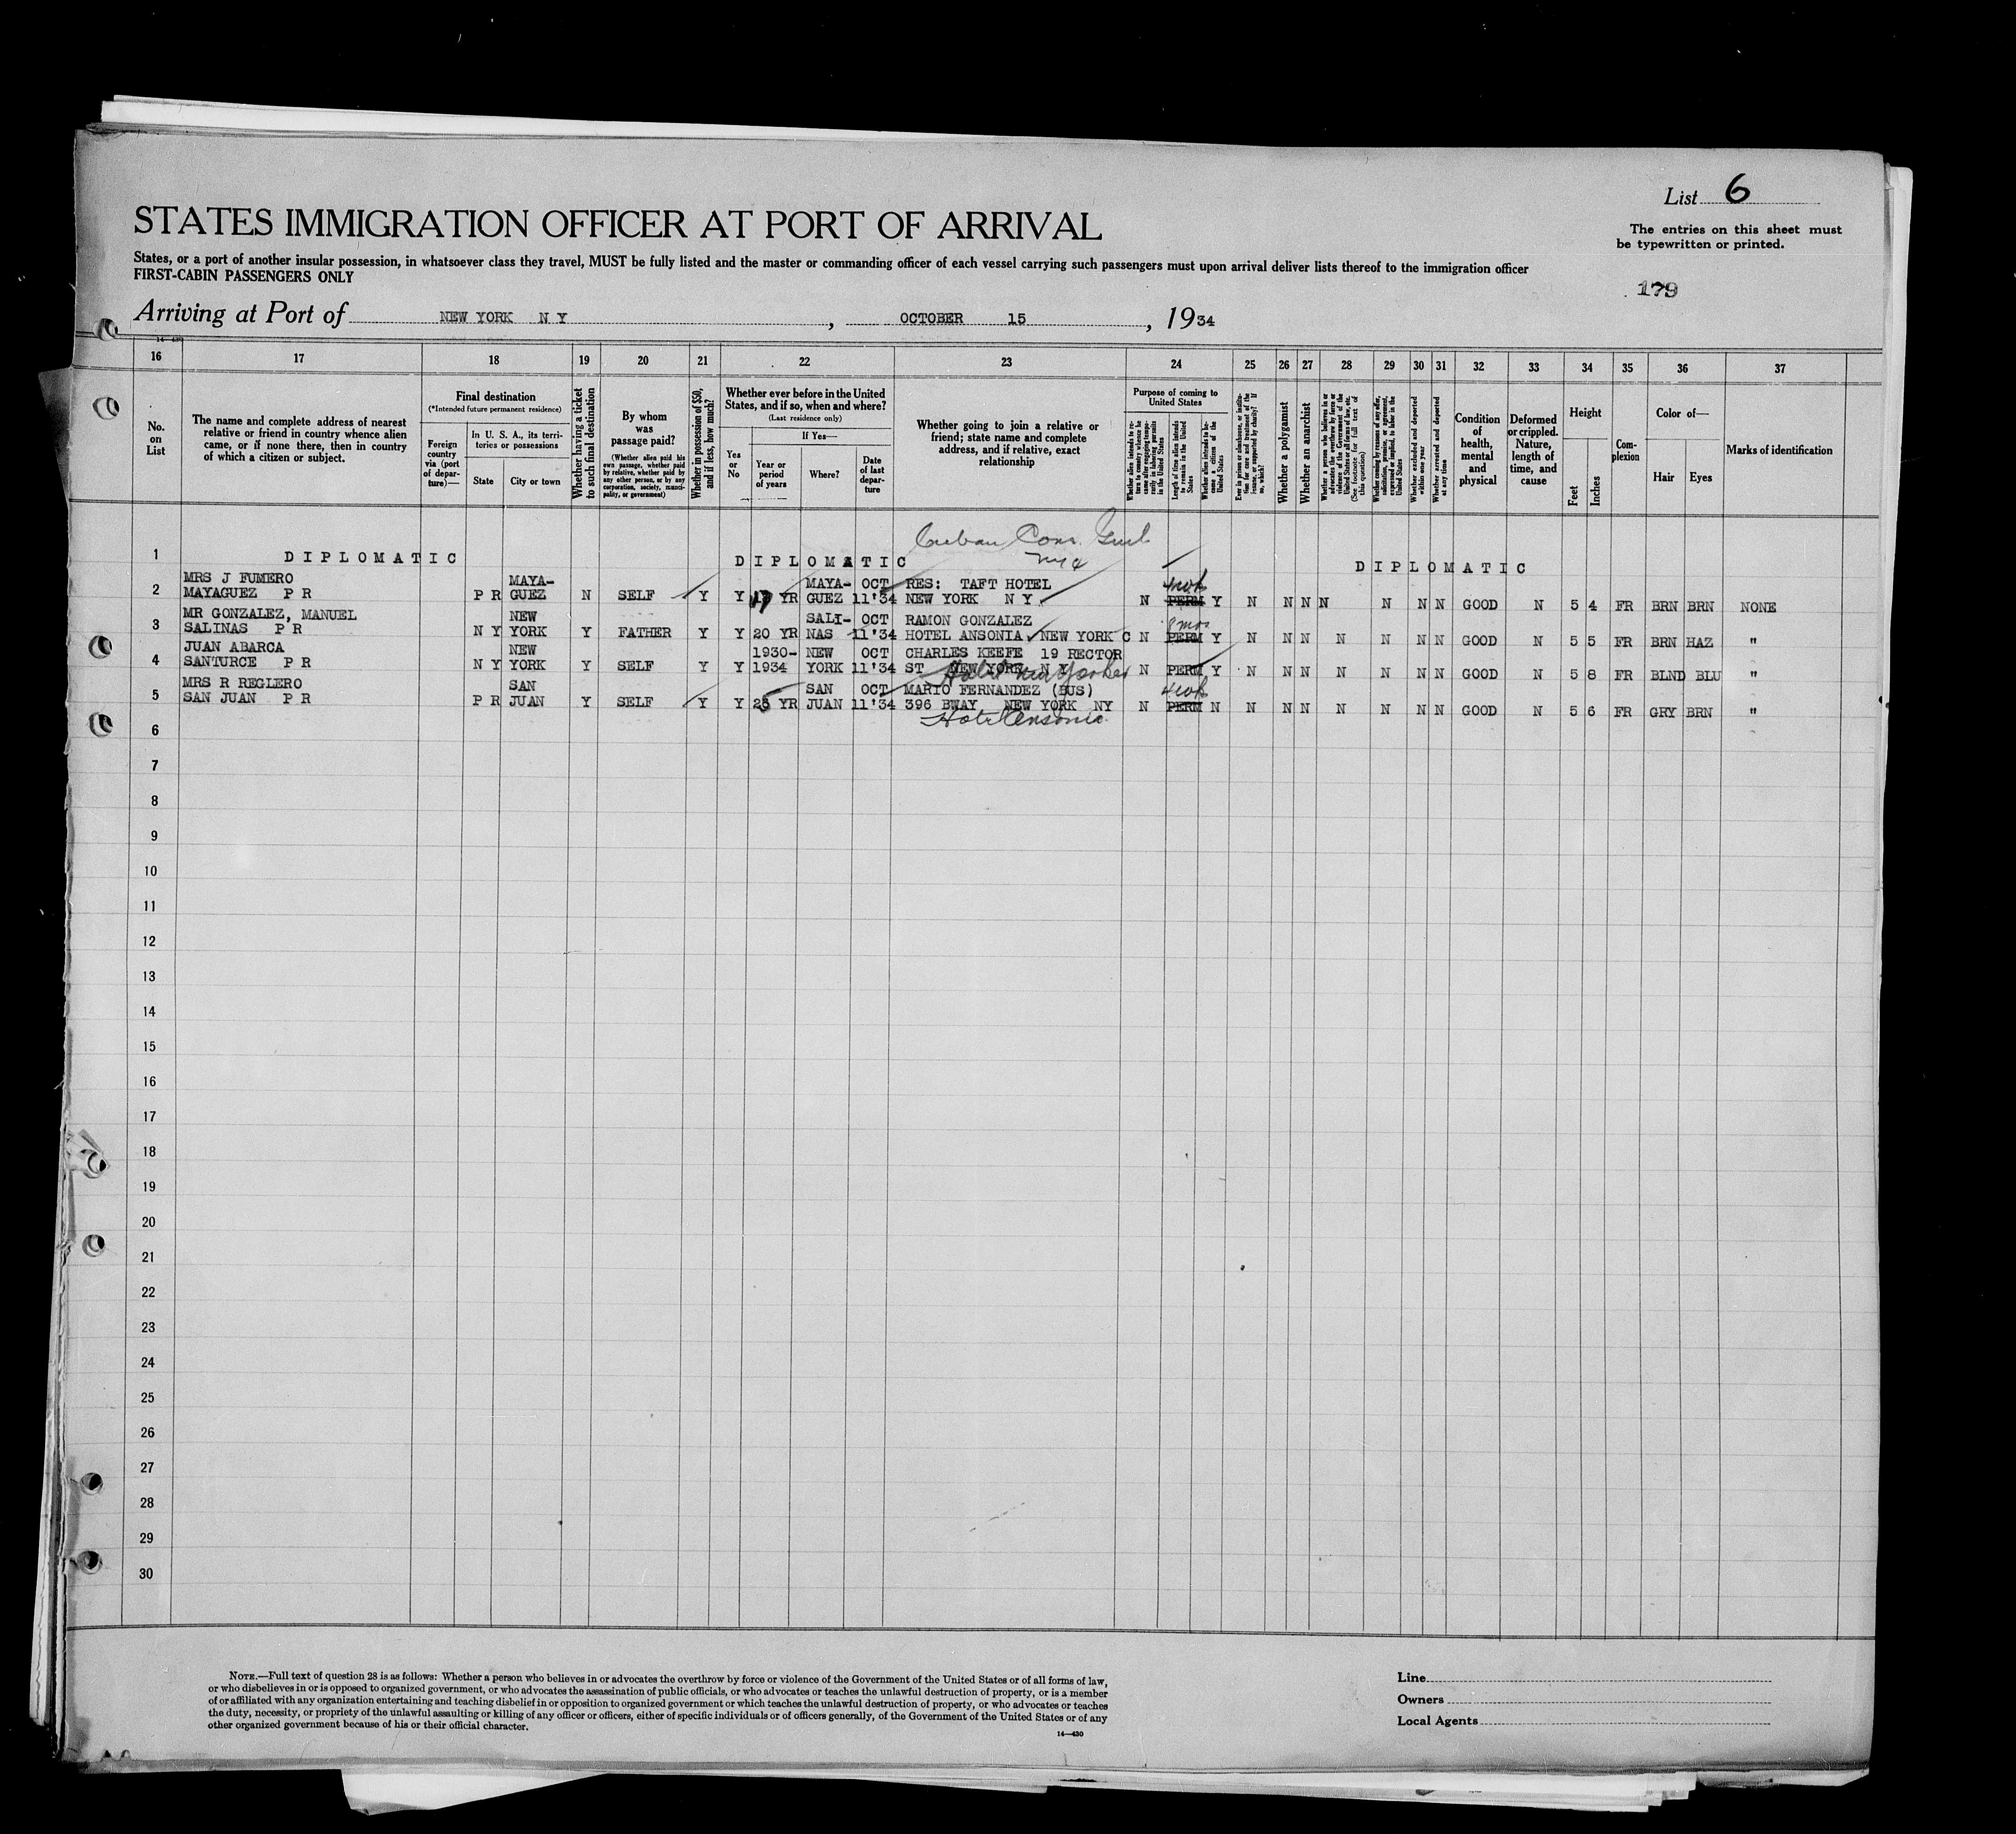 List 6
STATES IMMIGRATION OFFICER AT PORT OF ARRIVAL
The entries on this sheet must
be typewritten or printed.
States, or a port of another insular possession, in whatsoever class they travel, MUST be fully listed and the master or commanding officer of each vessel carrying such passengers must upon arrival deliver lists thereof to the immigration officer
FIRST-CABIN PASSENGERS ONLY
179
Arriving at Port of NEW YORK N Y, OCTOBER 15, 1934
16 17 18 19 20 21 22 23 24 25 26 27 28 29 30 31 32 33 34 35 36 37
No. on List
The name and complete address of nearest
relative or friend in country whence alien
came, or if none there, then in country
of which a citizen or subject.
Final destination
(*Intended future permanent residence)
Foreign country via (port of depar-ture)—
In U. S. A., its terri-
tories or possessions
State City or town
Whether having a ticket to such final destination
By whom was passage paid?
(Whether alien paid his own passage, whether paid by relative, whether paid by any other person, or by any corporation, society, munici-pality, or government)
Whether in possession of $50, and if less, how much?
Whether ever before in the United
States, and if so, when and where?
(Last residence only)
Yes or No
If Yes—
Year or period of years
Where?
Date of last depar-ture
Whether going to join a relative or
friend; state name and complete
address, and if relative, exact
relationship
Purpose of coming to
United States
Length of time alien intends to remain in the United States
Whether alien intends to be-come a citizen of the United States
Whether a polygamist
Whether an anarchist
Whether excluded and deported within one year
Whether arrested and deported at any time
Condition of health, mental and physical
Deformed or crippled. Nature, length of time, and cause
Height
Feet Inches
Com-plexion
Color of—
Hair Eyes
Marks of identification
Cuban Cons. Genl
NYC
1 DIPLOMATIC DIPLOMATIC DIPLOMATIC
MRS J FUMERO MAYA- MAYA- OCT RES: TAFT HOTEL
2 MAYAGUEZ P R P R GUEZ N SELF Y Y 17 YR GUEZ 11'34 NEW YORK N Y N PERM Y N N N N N N N GOOD N 5 4 FR BRN BRN NONE
MR GONZALEZ, MANUEL NEW SALI- OCT RAMON GONZALEZ 8 mos
3 SALINAS P R N Y YORK Y FATHER Y Y 20 YR NAS 11'34 HOTEL ANSONIA NEW YORK C N PERM Y N N N N N N N GOOD N 5 5 FR BRN HAZ "
JUAN ABARCA NEW 1930- NEW OCT CHARLES KEEFE 19 RECTOR
4 SANTURCE P R N Y YORK Y SELF Y Y 1934 YORK 11'34 ST NEW YORK N Y N PERM Y N N N N N N N GOOD N 5 8 FR BLND BLU "
Hotel New Yorker
MRS R REGLERO SAN SAN OCT MARIO FERNANDEZ (BUS)
5 SAN JUAN P R P R JUAN Y SELF Y Y 25 YR JUAN 11'34 396 BWAY NEW YORK NY N PERM N N N N N N N N GOOD N 5 6 FR GRY BRN "
Hotel Ansonia
6
7
8
9
10
11
12
13
14
15
16
17
18
19
20
21
22
23
24
25
26
27
28
29
30
NOTE.—Full text of question 28 is as follows: Whether a person who believes in or advocates the overthrow by force or violence of the Government of the United States or of all forms of law,
or who disbelieves in or is opposed to organized government, or who advocates the assassination of public officials, or who advocates or teaches the unlawful destruction of property, or is a member
of or affiliated with any organization entertaining and teaching disbelief in or opposition to organized government or which teaches the unlawful destruction of property, or who advocates or teaches
the duty, necessity, or propriety of the unlawful assaulting or killing of any officer or officers, either of specific individuals or of officers generally, of the Government of the United States or of any
other organized government because of his or their official character.
14—430
Line
Owners
Local Agents